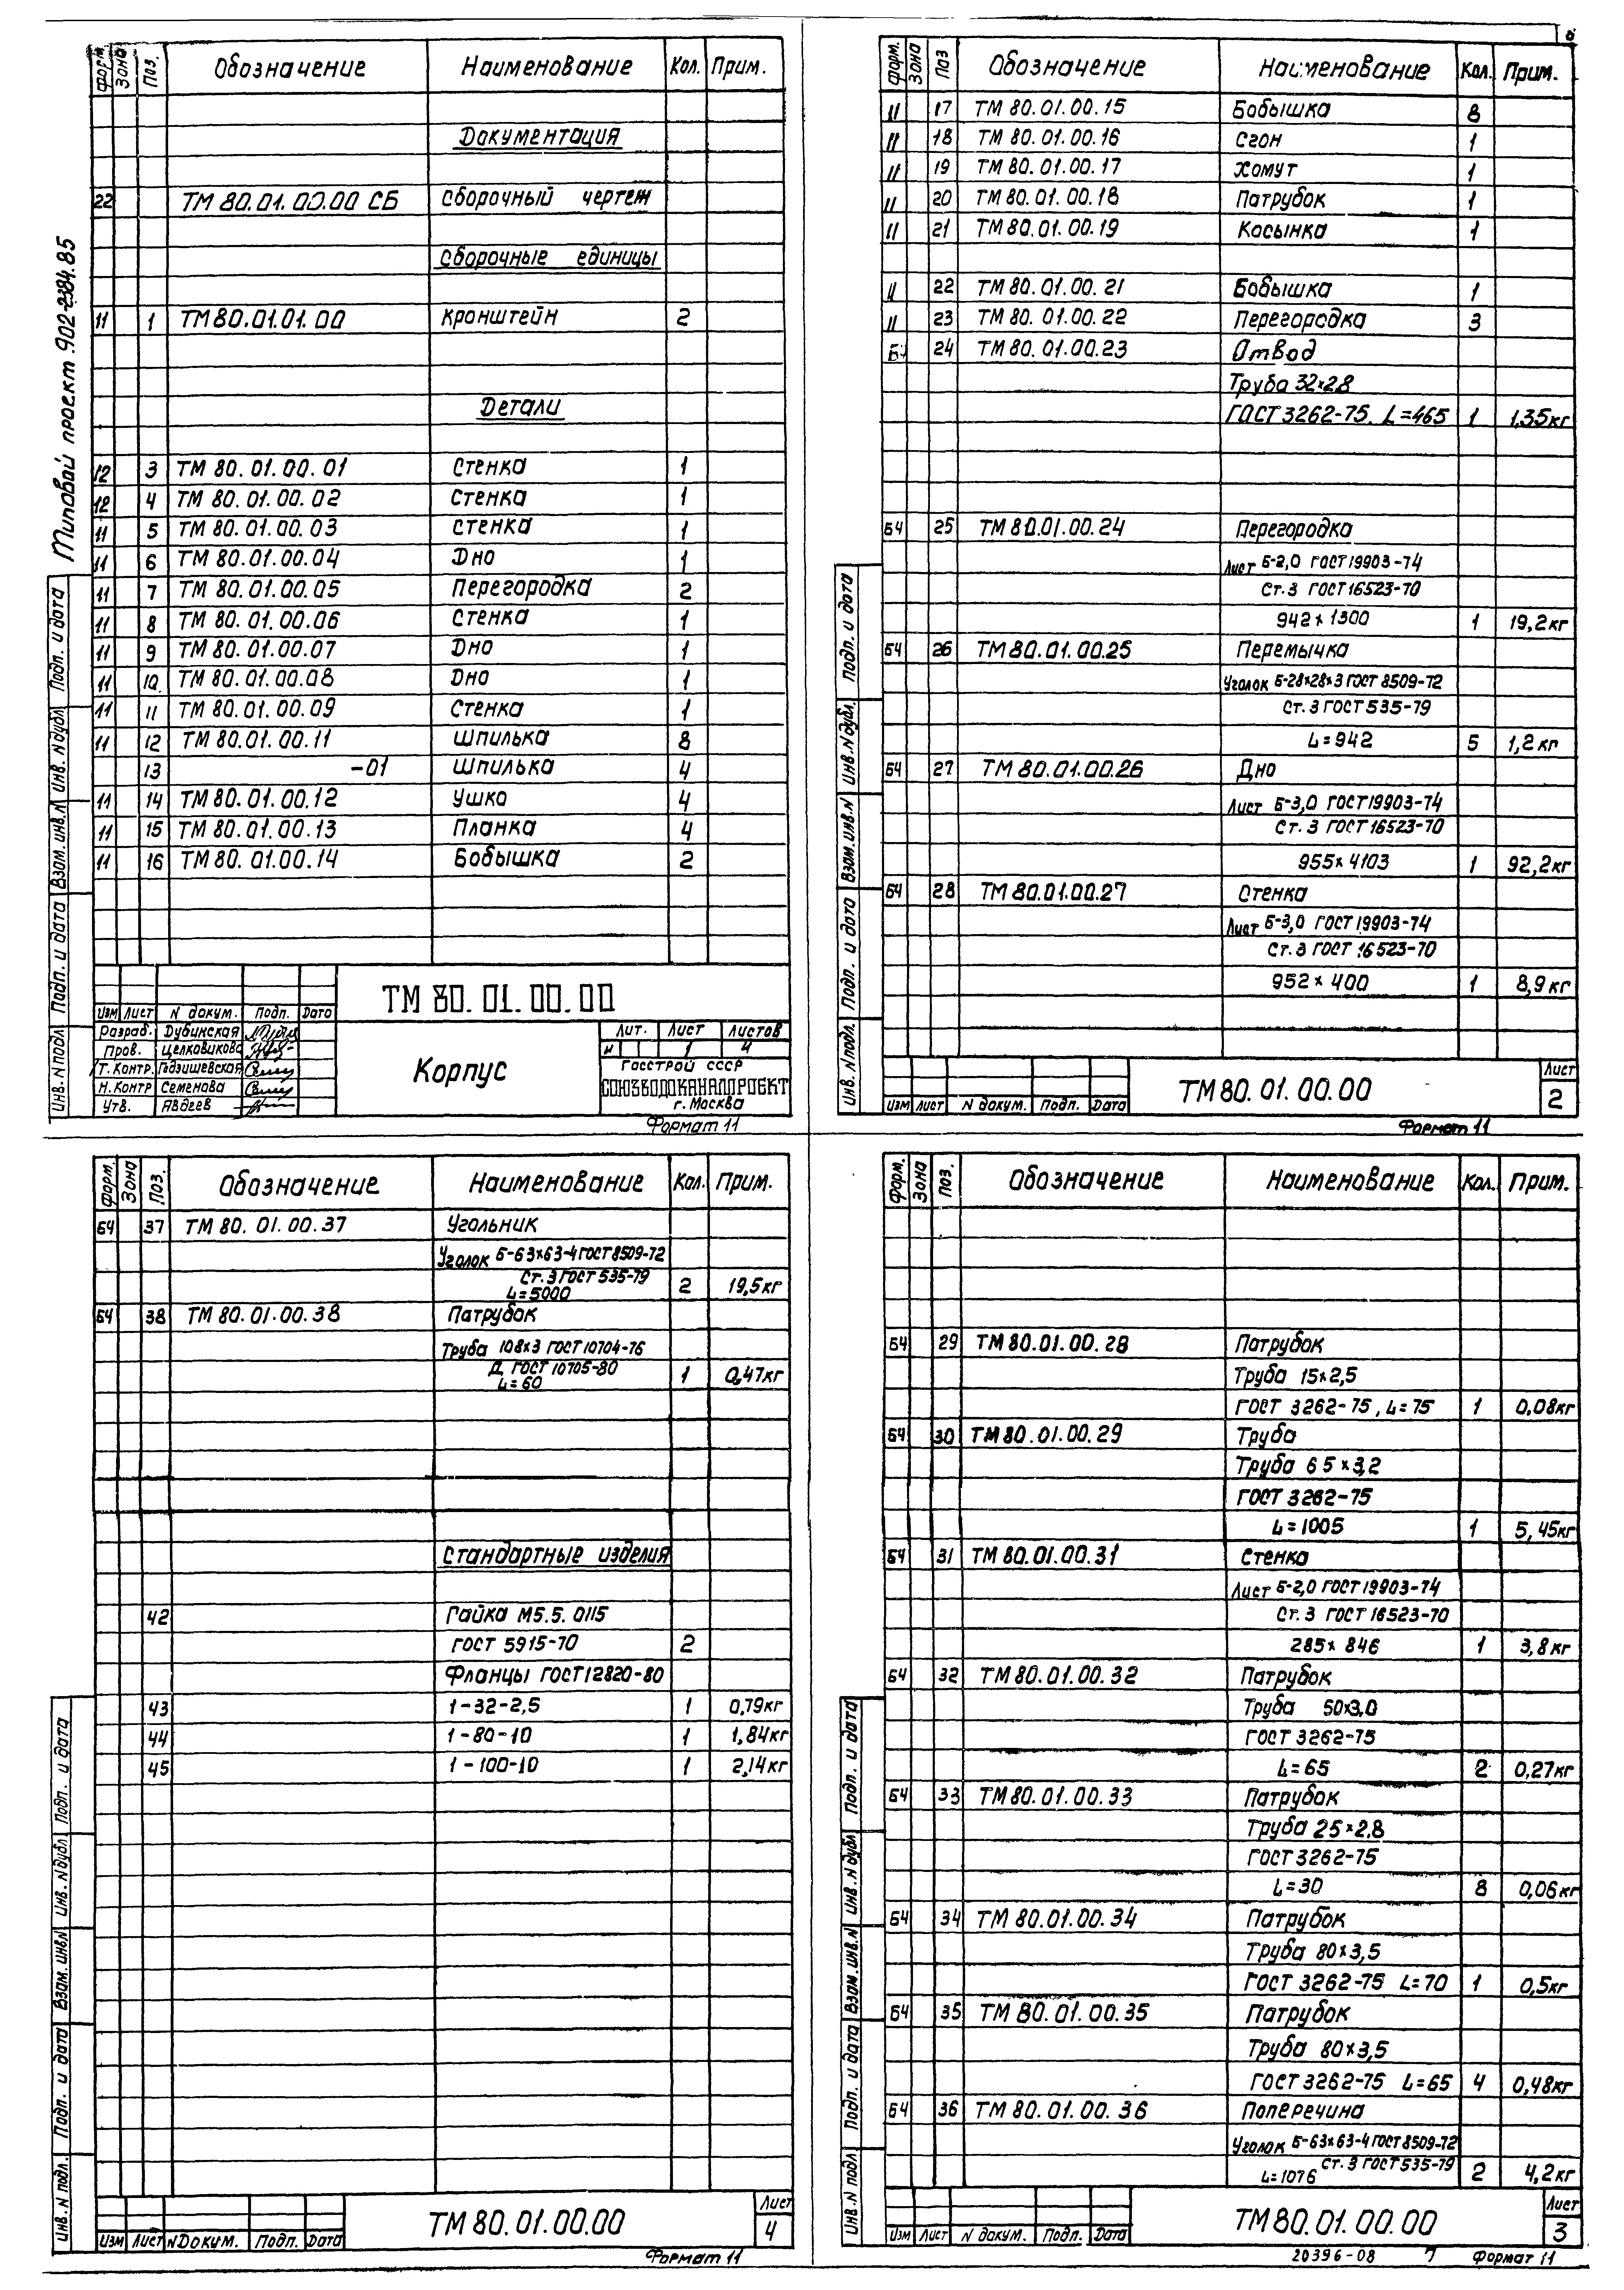 Типовой проект 902-2384.85
Форм. Зона Поз. Обозначение Наименование Кол. Прим.
Документация
22 ТМ 80.01.00.00 СБ Сборочный чертеж
Сборочные единицы
11 1 ТМ 80.01.01.00 Кронштейн 2
Детали
12 3 ТМ 80.01.00.01 Стенка 1
12 4 ТМ 80.01.00.02 Стенка 1
11 5 ТМ 80.01.00.03 Стенка 1
11 6 ТМ 80.01.00.04 Дно 1
11 7 ТМ 80.01.00.05 Перегородка 2
11 8 ТМ 80.01.00.06 Стенка 1
11 9 ТМ 80.01.00.07 Дно 1
11 10 ТМ 80.01.00.08 Дно 1
11 11 ТМ 80.01.00.09 Стенка 1
11 12 ТМ 80.01.00.11 Шпилька 8
13 -01 Шпилька 4
11 14 ТМ 80.01.00.12 Ушко 4
11 15 ТМ 80.01.00.13 Планка 4
11 16 ТМ 80.01.00.14 Бобышка 2
Инв. N подл. Подп. и дата Взам. инв. N Инв. N дубл. Подп. и дата
ТМ 80.01.00.00
Изм Лист N докум. Подп. Дата
Разраб. Дубинская
Пров. Целковикова
Т. Контр. Гадзишевская
Н. Контр Семенова
Утв. Авдеев
Корпус
Лит. Лист Листов
И 1 4
Госстрой СССР
СОЮЗВОДОКАНАЛПРОЕКТ
г. Москва
Формат 11
Форм. Зона Поз Обозначение Наименование Кол. Прим.
11 17 ТМ 80.01.00.15 Бобышка 8
11 18 ТМ 80.01.00.16 Сгон 1
11 19 ТМ 80.01.00.17 Хомут 1
11 20 ТМ 80.01.00.18 Патрубок 1
11 21 ТМ 80.01.00.19 Косынка 1
11 22 ТМ 80.01.00.21 Бобышка 1
11 23 ТМ 80.01.00.22 Перегородка 3
Б4 24 ТМ 80.01.00.23 Отвод
Труба 32×2.8
ГОСТ 3262-75. L=465 1 1,35кг
Б4 25 ТМ 80.01.00.24 Перегородка
Лист Б-2,0 ГОСТ 19903-74
Ст.3 ГОСТ 16523-70
942 × 1300 1 19,2кг
Б4 26 ТМ 80.01.00.25 Перемычка
Уголок Б-28×28×3 ГОСТ 8509-72
Ст.3 ГОСТ 535-79
L=942 5 1,2 кг
Б4 27 ТМ 80.01.00.26 Дно
Лист Б-3,0 ГОСТ 19903-74
Ст.3 ГОСТ 16523-70
955×4103 1 92,2кг
Б4 28 ТМ 80.01.00.27 Стенка
Лист Б-3,0 ГОСТ 19903-74
Ст.3 ГОСТ 16523-70
952 × 400 1 8,9 кг
Инв. N подл. Подп. и дата Взам. инв. N Инв. N дубл. Подп. и дата
Изм Лист N докум. Подп. Дата
ТМ 80.01.00.00
Лист
2
Формат 11
Форм. Зона Поз. Обозначение Наименование Кол. Прим.
Б4 37 ТМ 80.01.00.37 Угольник
Уголок Б-63×63-4 ГОСТ 8509-72
Ст.3 ГОСТ 535-79
L=5000 2 19,5кг
Б4 38 ТМ 80.01.00.38 Патрубок
Труба 108×3 ГОСТ 10704-76
Д ГОСТ 10705-80
L=60 1 0,47кг
Стандартные изделия
42 Гайка М5.5.0115
ГОСТ 5915-70 2
Фланцы ГОСТ 12820-80
43 1-32-2,5 1 0,79кг
44 1-80-10 1 1,84кг
45 1-100-10 1 2,14кг
Инв. N подл. Подп. и дата Взам. инв. N Инв. N дубл. Подп. и дата
Изм Лист N Докум. Подп. Дата
ТМ 80.01.00.00
Лист
4
Формат 11
Форм. Зона Поз. Обозначение Наименование Кол. Прим.
Б4 29 ТМ 80.01.00.28 Патрубок
Труба 15×2,5
ГОСТ 3262-75, L=75 1 0,08кг
Б4 30 ТМ 80.01.00.29 Труба
Труба 65×3,2
ГОСТ 3262-75
L=1005 1 5,45кг
Б4 31 ТМ 80.01.00.31 Стенка
Лист Б-2,0 ГОСТ 19903-74
Ст.3 ГОСТ 16523-70
285× 846 1 3,8кг
Б4 32 ТМ 80.01.00.32 Патрубок
Труба 50×3,0
ГОСТ 3262-75
L=65 2 0,27кг
Б4 33 ТМ 80.01.00.33 Патрубок
Труба 25×2,8
ГОСТ 3262-75
L=30 8 0,06кг
Б4 34 ТМ 80.01.00.34 Патрубок
Труба 80×3,5
ГОСТ 3262-75 L=70 1 0,5кг
Б4 35 ТМ 80.01.00.35 Патрубок
Труба 80×3,5
ГОСТ 3262-75 L=65 4 0,48кг
Б4 36 ТМ 80.01.00.36 Поперечина
Уголок Б-63×63-4 ГОСТ 8509-72
Ст.3 ГОСТ 535-79
L=1076 2 4,2кг
Инв. N подл Подп. и дата Взам. инв. N Инв. N дубл Подп. и дата
Изм Лист N докум. Подп. Дата
ТМ 80.01.00.00
Лист
3
20396-08 7 Формат 11